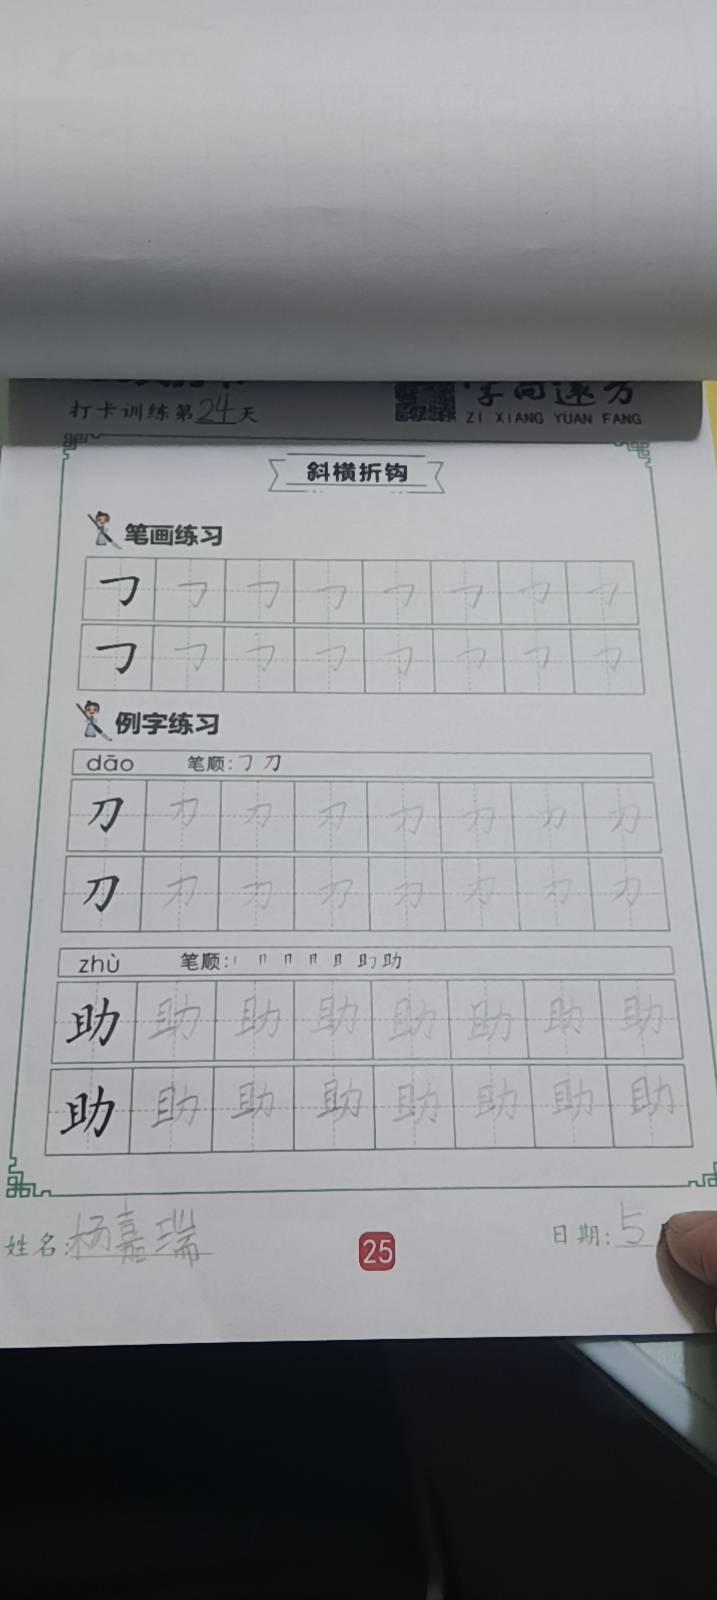 打卡训练第24天
字向遠方
ZI XIANG YUAN FANG
斜横折钩
笔画练习
㇆ ㇆ ㇆ ㇆ ㇆ ㇆ ㇆ ㇆
㇆ ㇆ ㇆ ㇆ ㇆ ㇆ ㇆ ㇆
例字练习
dāo 笔顺:㇆ 刀
刀 刀 刀 刀 刀 刀 刀 刀
刀 刀 刀 刀 刀 刀 刀 刀
zhù 笔顺: 助
助 助 助 助 助 助 助 助
助 助 助 助 助 助 助 助
姓名:杨嘉瑞
25
日期:5